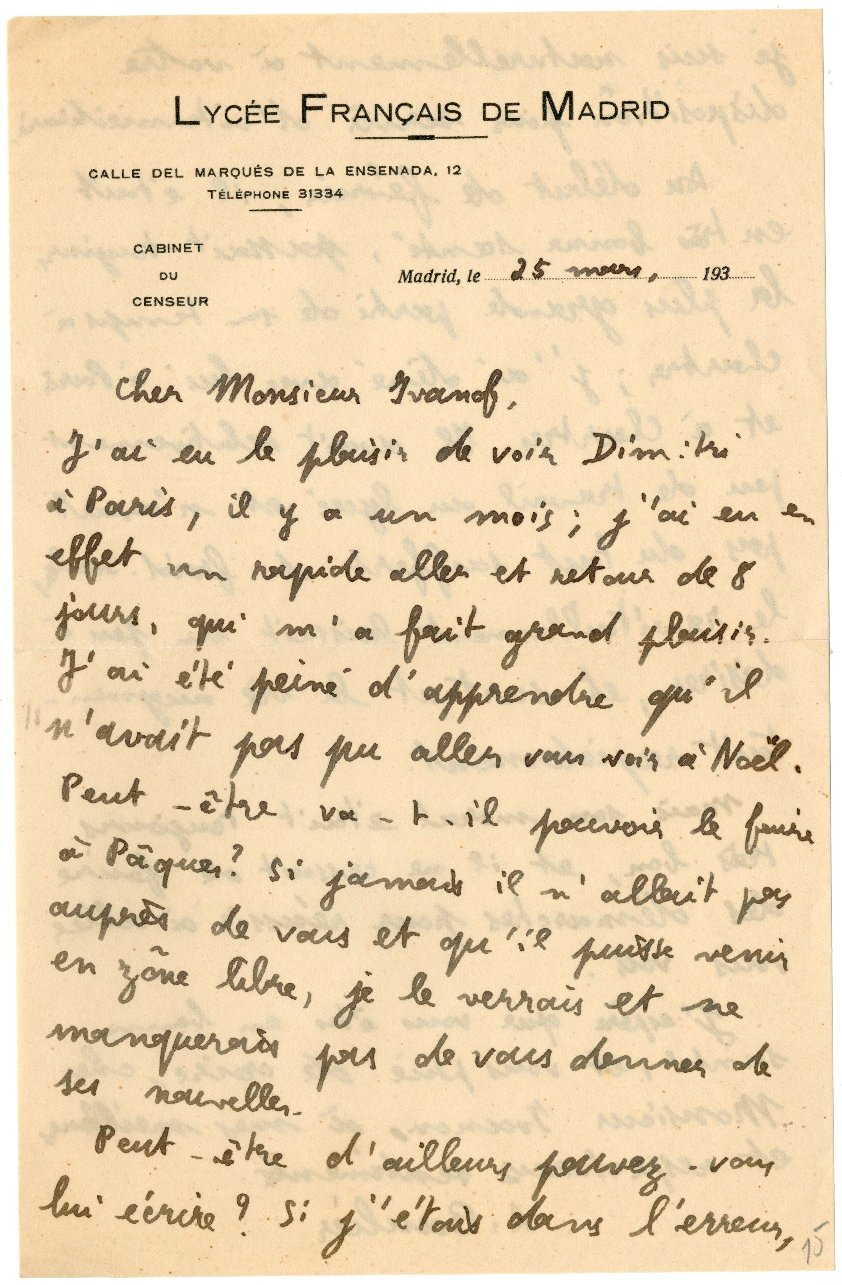 LYCÉE FRANÇAIS DE MADRID
CALLE DEL MARQUÉS DE LA ENSENADA, 12
TÉLÉPHONE 31334
CABINET
DU
CENSEUR
Madrid, le 25 mars, 193
Cher Monsieur Ivanof,
J'ai eu le plaisir de voir Dimitri
à Paris, il y a un mois; j'ai eu en
effet un rapide aller et retour de 8
jours, qui m'a fait grand plaisir.
J'ai été peiné d'apprendre qu'il
n'avait pas pu aller vous voir à Noël.
Peut-être va-t-il pouvoir le faire
à Pâques? Si jamais il n'allait pas
auprès de vous et qu'il puisse venir
en zône libre, je le verrais et ne
manquerais pas de vous donner de
ses nouvelles.
Peut-être d'ailleurs pouvez-vous
lui écrire? Si j'étais dans l'erreur,
15